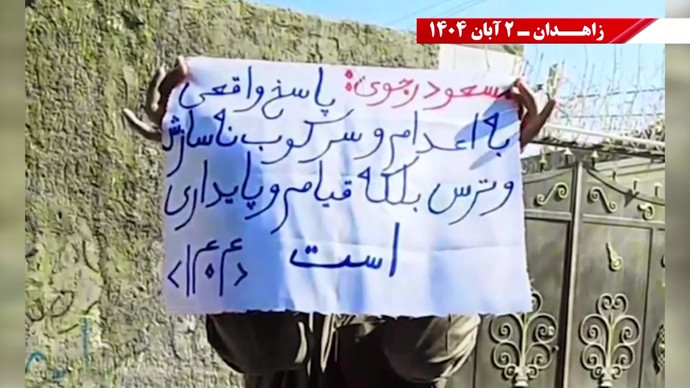 زاهدان ـ ۲ آبان ۱۴۰۴
مسعود رجوی: پاسخ واقعی
به اعدام و سرکوب نه سازش
و ترس بلکه قیام و پایداری
است